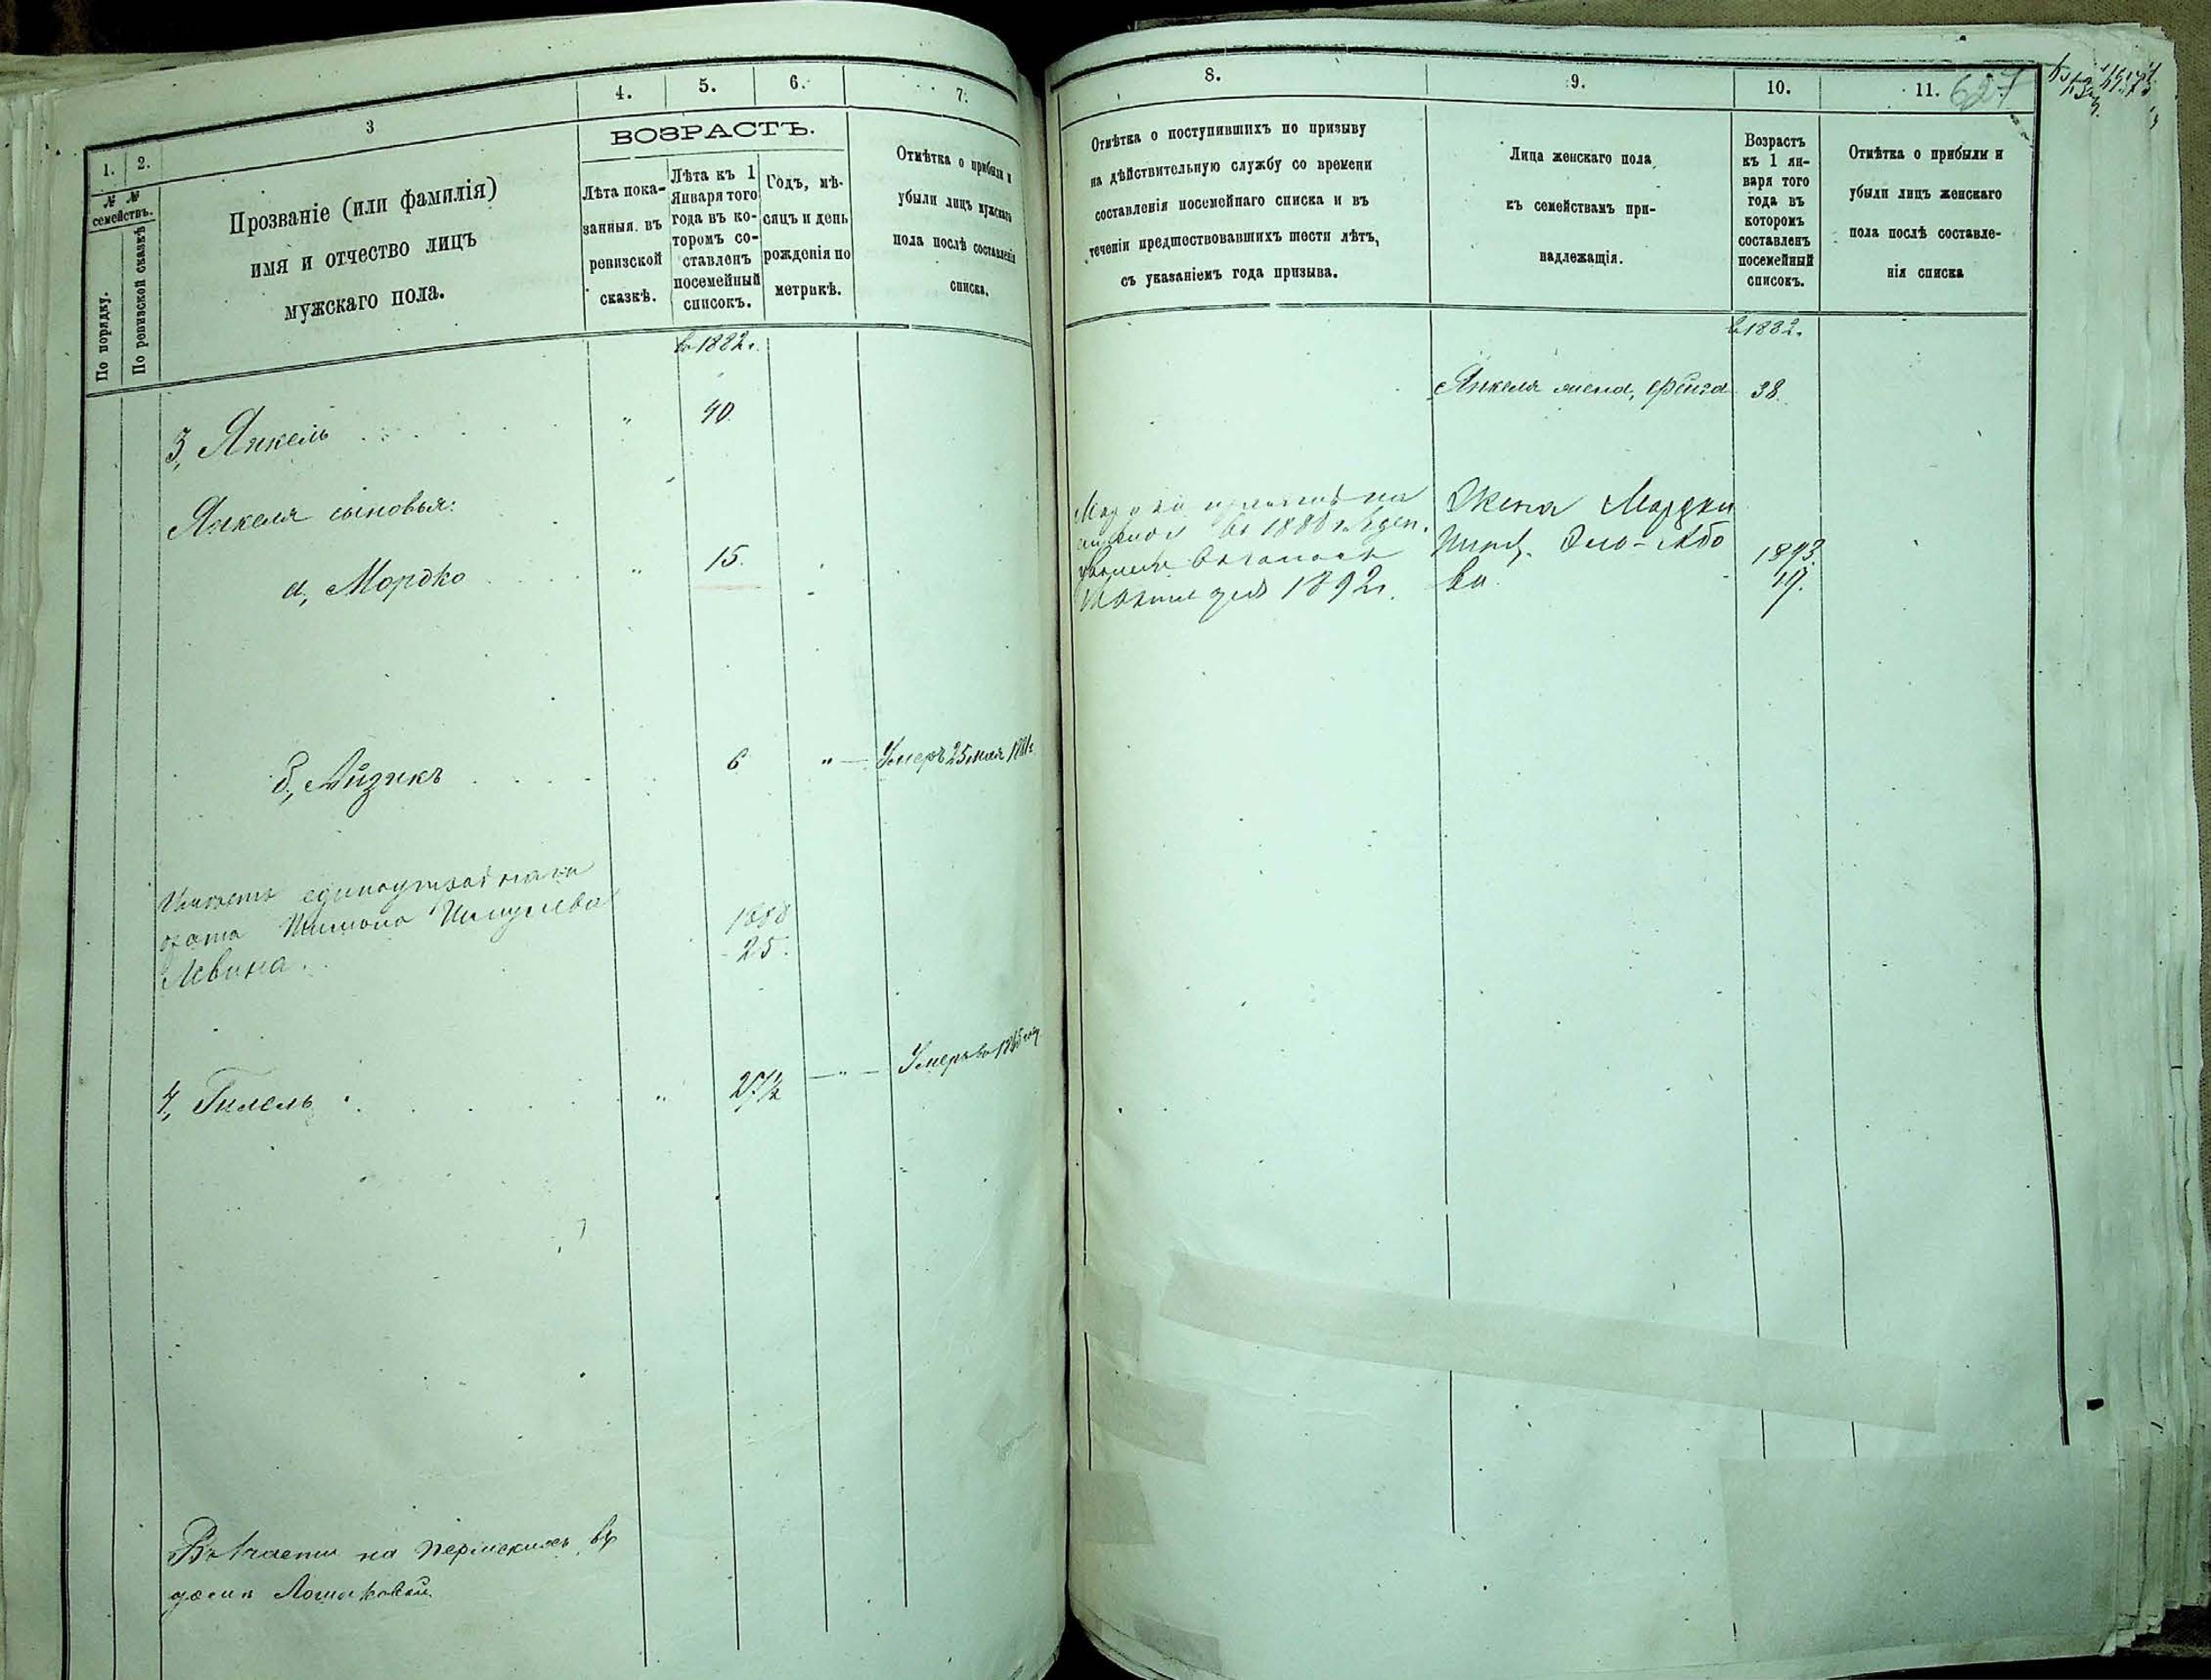 1. 2. 3 4. 5. 6. 7.
№ № семействъ.
По порядку.
По ревизской сказкѣ
Прозваніе (или фамилія)
имя и отчество лицъ
мужскаго пола.
ВОЗРАСТЪ.
Лѣта пока-
занныя въ
ревизской
сказкѣ.
Лѣта къ 1
Января того
года въ ко-
торомъ со-
ставленъ
посемейный
списокъ.
Годъ, мѣ-
сяцъ и день
рожденія по
метрикѣ.
Отмѣтка о прибыли и
убыли лицъ мужскаго
пола послѣ составленія
списка.
въ 1882 г.
3, Янкель 40.
Янкеля сыновья:
а, Мордко 15.
б, Айзикъ 6 Умеръ 25 мая
брата
Левина.
1888
25.
4, Гилель 27½ Умеръ въ
на
8. 9. 10. 11.
627
Отмѣтка о поступившихъ по призыву
на дѣйствительную службу со времени
составленія посемейнаго списка и въ
теченіи предшествовавшихъ шести лѣтъ,
съ указаніемъ года призыва.
Лица женскаго пола
къ семействамъ при-
надлежащія.
Возрастъ
къ 1 ян-
варя того
года въ
которомъ
составленъ
посемейный
списокъ.
Отмѣтка о прибыли и
убыли лицъ женскаго
пола послѣ составле-
нія списка
въ 1882 г.
Янкеля жена, Фейга 38.
Жена Мордки
1893
19.
1892 г.